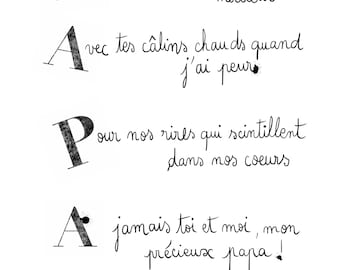 Avec tes câlins chauds quand
j'ai peur.
Pour nos rires qui scintillent
dans nos coeurs
A jamais toi et moi, mon
précieux papa !